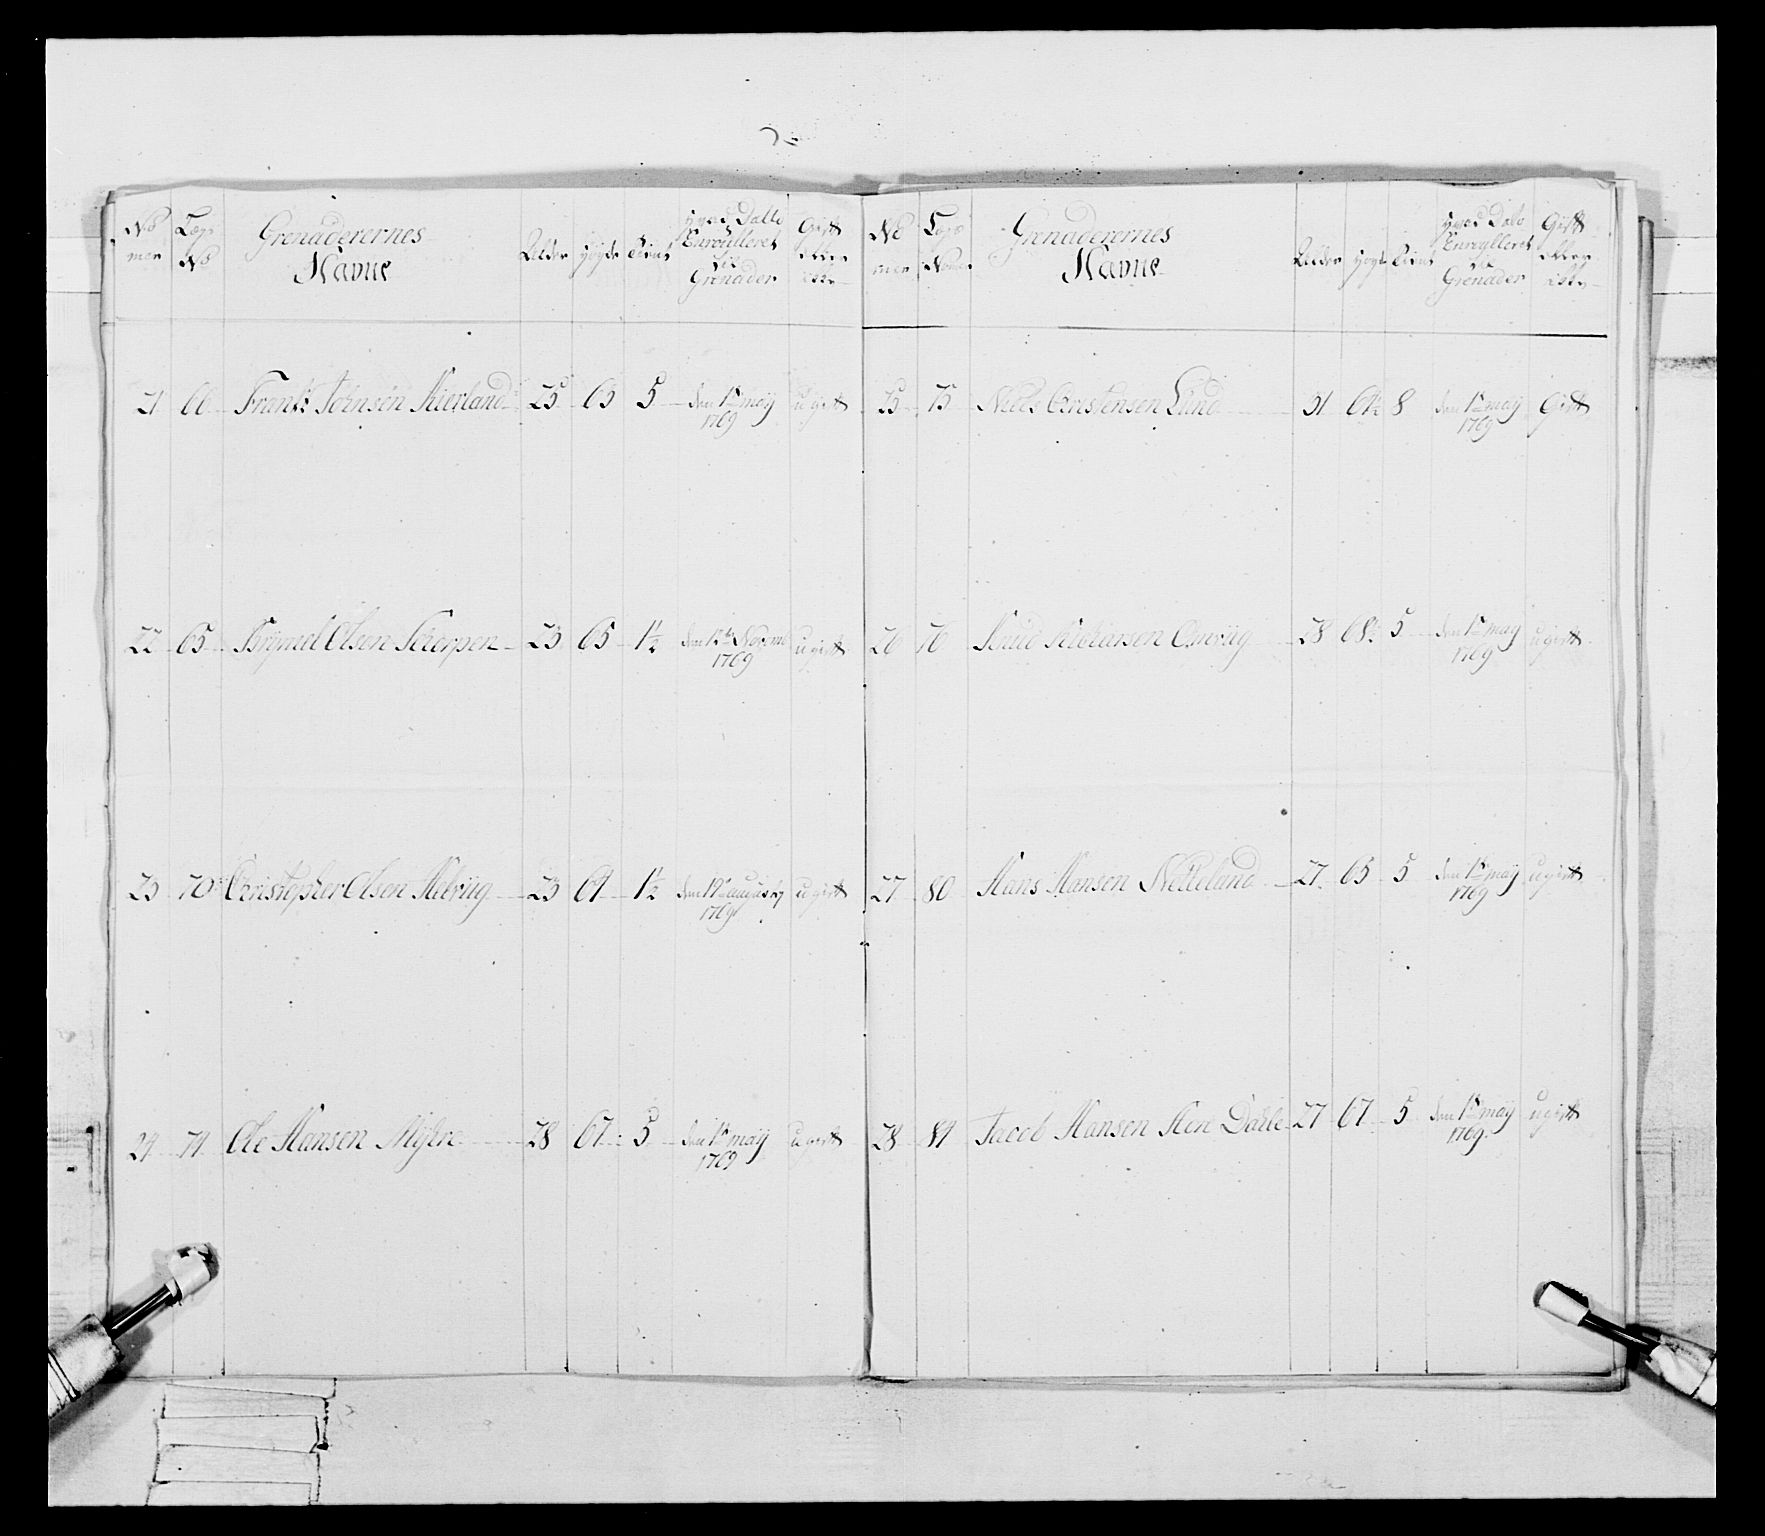 No mer | Lægs No | Grenaderernes Navne | Alder | Høyde | Tient | Hvad Datto Enroulleret til Grenader | Gift eller icke
21 | 66 | Johnsen Kierland | 25 | 65 | 5 | den 1te maÿ 1769 | ugift
22 | 65 | Olsen Skierpen | 23 | 65 | 1½ | den 12te Novemb 1769 | ugift
23 | 70 | Christopher Olsen | 23 | 64 | 1½ | den 19 augusty 1769 | ugift
24 | 74 | Ole Hansen Myhre | 28 | 67 | 5 | den 1te maÿ 1769 | ugift
No mer | Lægs Nomer | Grenaderernes Navne | Alder | Høyde | Tient | Hvad Dato Enroylleret til Grenader | Gift eller icke
25 | 75 | Niels Christensen Lund | 31 | 64½ | 8 | den 1te maÿ 1769 | Gift
26 | 76 | Knud | 28 | 68½ | 5 | den 1te maÿ 1769 | ugift
27 | 80 | Hans Hansen Netteland | 27 | 65 | 5 | den 1te maÿ 1769 | ugift
28 | 84 | Jacob Hansen Dahle | 27 | 67 | 5 | den 1te maÿ 1769 | ugift